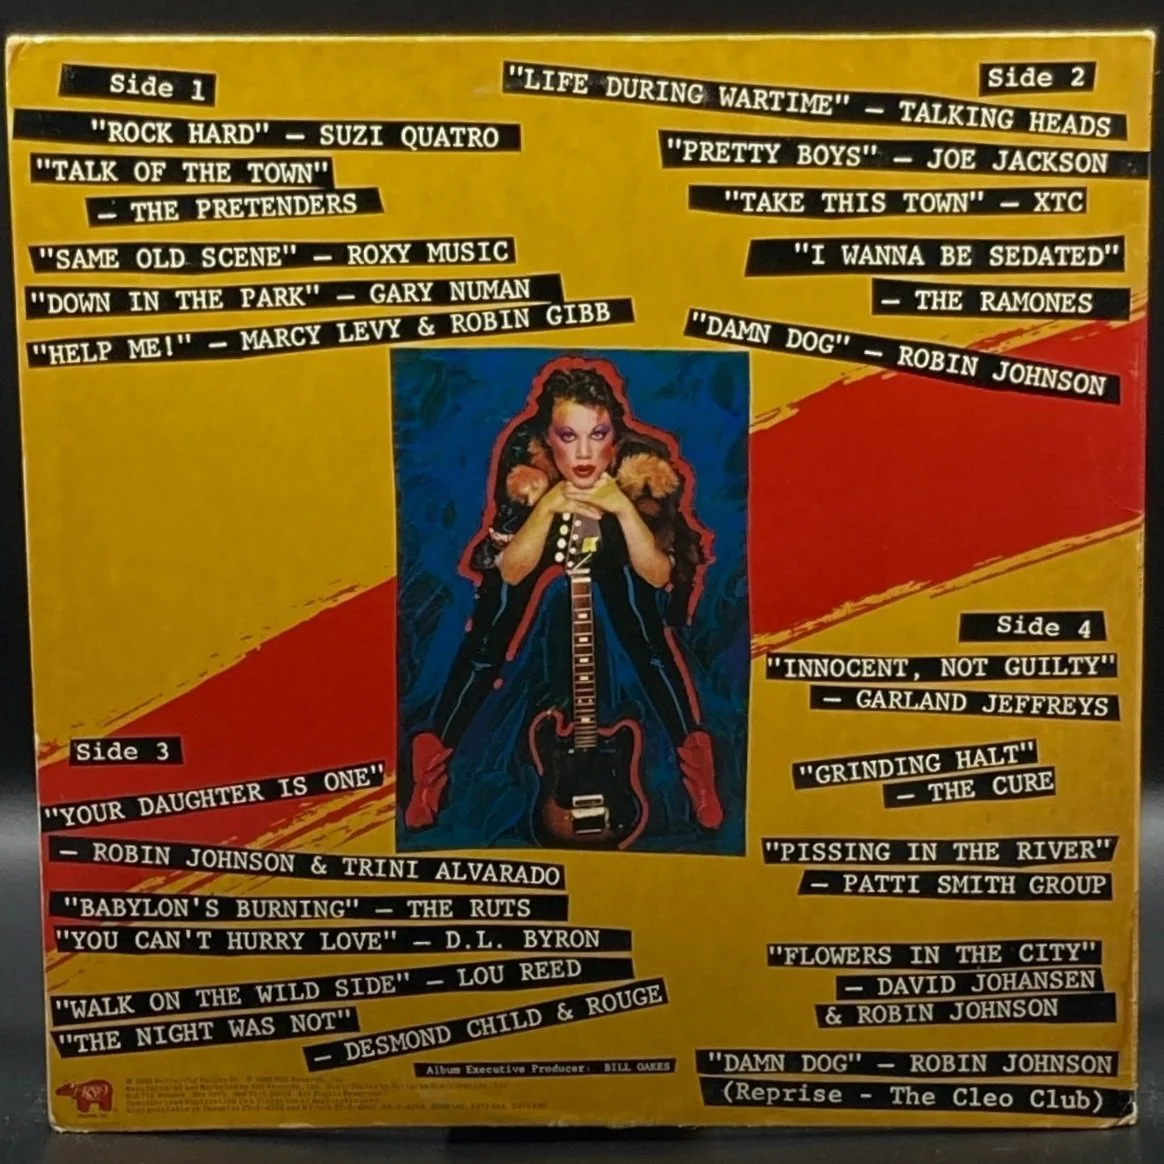 Side 1
"ROCK HARD" — SUZI QUATRO
"TALK OF THE TOWN"
— THE PRETENDERS
"SAME OLD SCENE" — ROXY MUSIC
"DOWN IN THE PARK" — GARY NUMAN
"HELP ME!" — MARCY LEVY & ROBIN GIBB
Side 2
"LIFE DURING WARTIME" — TALKING HEADS
"PRETTY BOYS" — JOE JACKSON
"TAKE THIS TOWN" — XTC
"I WANNA BE SEDATED"
— THE RAMONES
"DAMN DOG" — ROBIN JOHNSON
Side 3
"YOUR DAUGHTER IS ONE"
— ROBIN JOHNSON & TRINI ALVARADO
"BABYLON'S BURNING" — THE RUTS
"YOU CAN'T HURRY LOVE" — D.L. BYRON
"WALK ON THE WILD SIDE" — LOU REED
"THE NIGHT WAS NOT"
— DESMOND CHILD & ROUGE
Side 4
"INNOCENT, NOT GUILTY"
— GARLAND JEFFREYS
"GRINDING HALT"
— THE CURE
"PISSING IN THE RIVER"
— PATTI SMITH GROUP
"FLOWERS IN THE CITY"
— DAVID JOHANSEN
& ROBIN JOHNSON
"DAMN DOG" — ROBIN JOHNSON
(Reprise - The Cleo Club)
Album Executive Producer: BILL OAKES
RSO